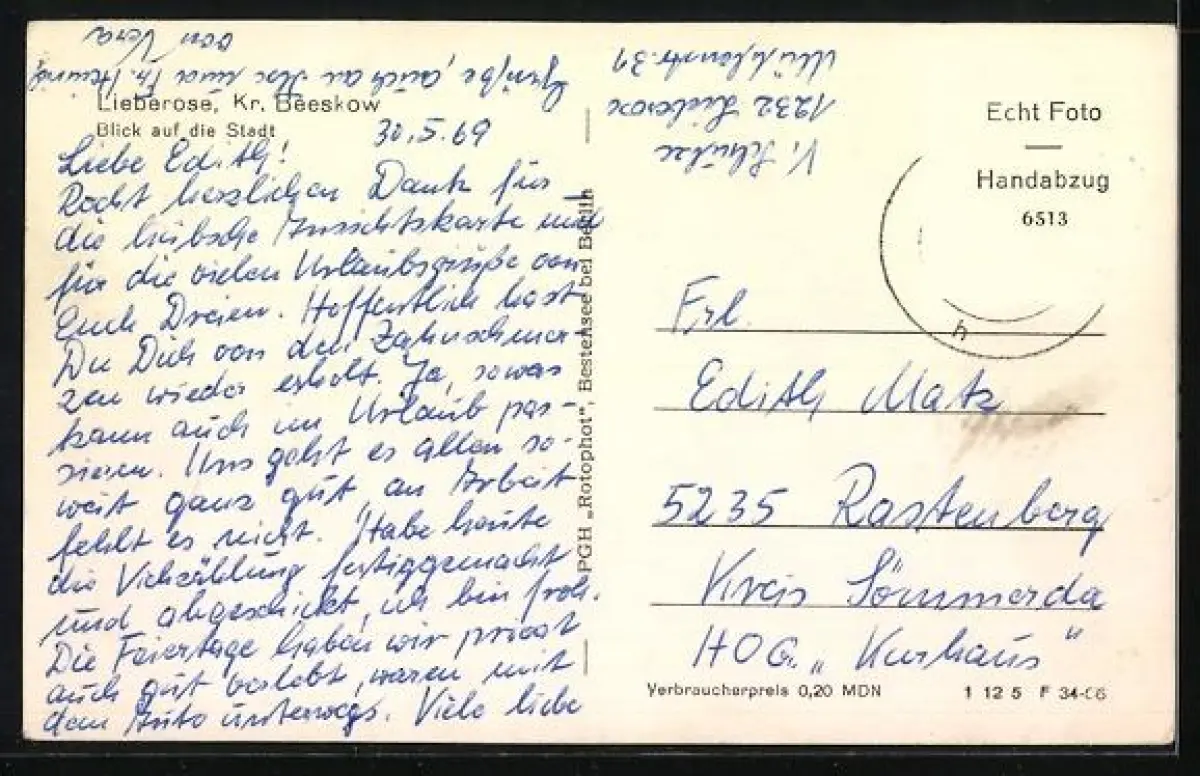 Lieberose, Kr. Beeskow
Blick auf die Stadt
30.5.69
Liebe Edith!
Recht herzlichen Dank für
die hübsche Ansichtskarte und
für die vielen Urlaubsgrüße von
Euch Dreien. Hoffentlich hast
Du Dich von den Zahnschmer-
zen wieder erholt. Ja, sowas
kann auch im Urlaub pas-
sieren. Uns geht es allen so-
weit ganz gut, an Arbeit
fehlt es nicht. Habe heute
die Viehzählung fertiggemacht
und abgeschickt, ich bin froh.
Die Feiertage haben wir privat
auch gut verlebt, waren mit
dem Auto unterwegs. Viele liebe
Grüße, auch an Ilse und Fr.
von Vera
PGH „Rotophot", Bestensee bei Berlin
V. Schulze
1232 Lieberose
Mühlenstr. 31
Echt Foto
Handabzug
6513
h
Frl.
Edith Matz
5235 Rastenberg
Kreis Sömmerda
HOG. „Kurhaus"
Verbraucherpreis 0,20 MDN
1 12 5 F 34-66